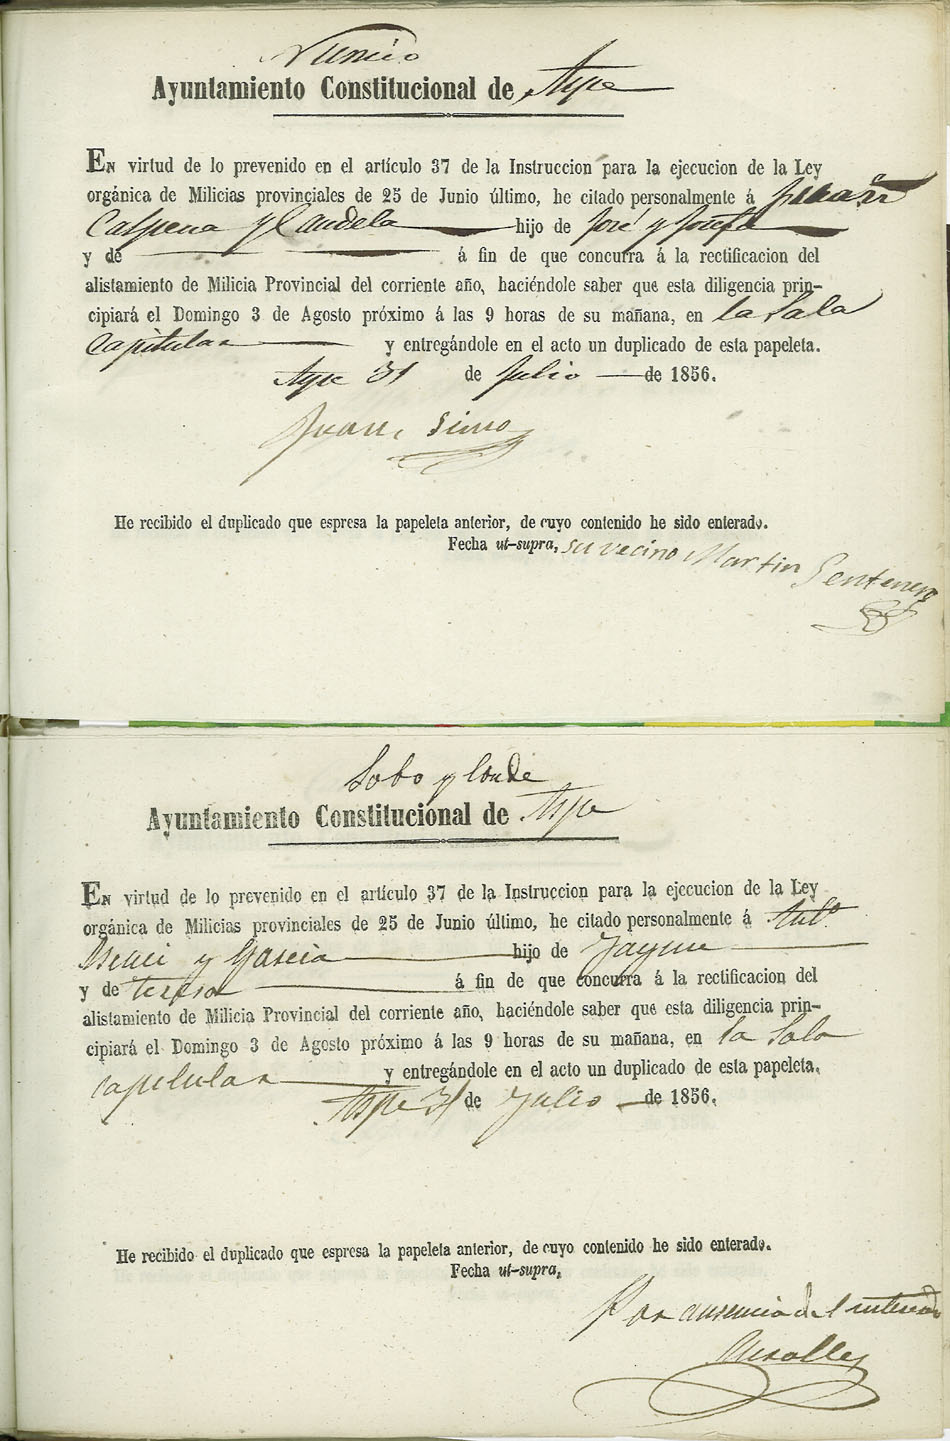 Nuncio
Ayuntamiento Constitucional de Aspe
En virtud de lo prevenido en el artículo 37 de la Instruccion para la ejecucion de la Ley
orgánica de Milicias provinciales de 25 de Junio último, he citado personalmente á Juan
Calpena y Candela hijo de José y Josefa
y de á fin de que concurra á la rectificacion del
alistamiento de Milicia Provincial del corriente año, haciéndole saber que esta diligencia prin-
cipiará el Domingo 3 de Agosto próximo á las 9 horas de su mañana, en la Sala
Capitular y entregándole en el acto un duplicado de esta papeleta.
Aspe 31 de Julio de 1856.
Juan Simo
He recibido el duplicado que espresa la papeleta anterior, de cuyo contenido he sido enterado.
Fecha ut-supra, su vecino Martin
Sobo y Conde
Ayuntamiento Constitucional de Aspe
En virtud de lo prevenido en el artículo 37 de la Instruccion para la ejecucion de la Ley
orgánica de Milicias provinciales de 25 de Junio último, he citado personalmente á Antº
y Garcia hijo de Jayme
y de teresa á fin de que concurra á la rectificacion del
alistamiento de Milicia Provincial del corriente año, haciéndole saber que esta diligencia prin-
cipiará el Domingo 3 de Agosto próximo á las 9 horas de su mañana, en la Sala
capitular y entregándole en el acto un duplicado de esta papeleta.
Aspe 31 de Julio de 1856.
He recibido el duplicado que espresa la papeleta anterior, de cuyo contenido he sido enterado.
Fecha ut-supra,
Por ausencia del interesado